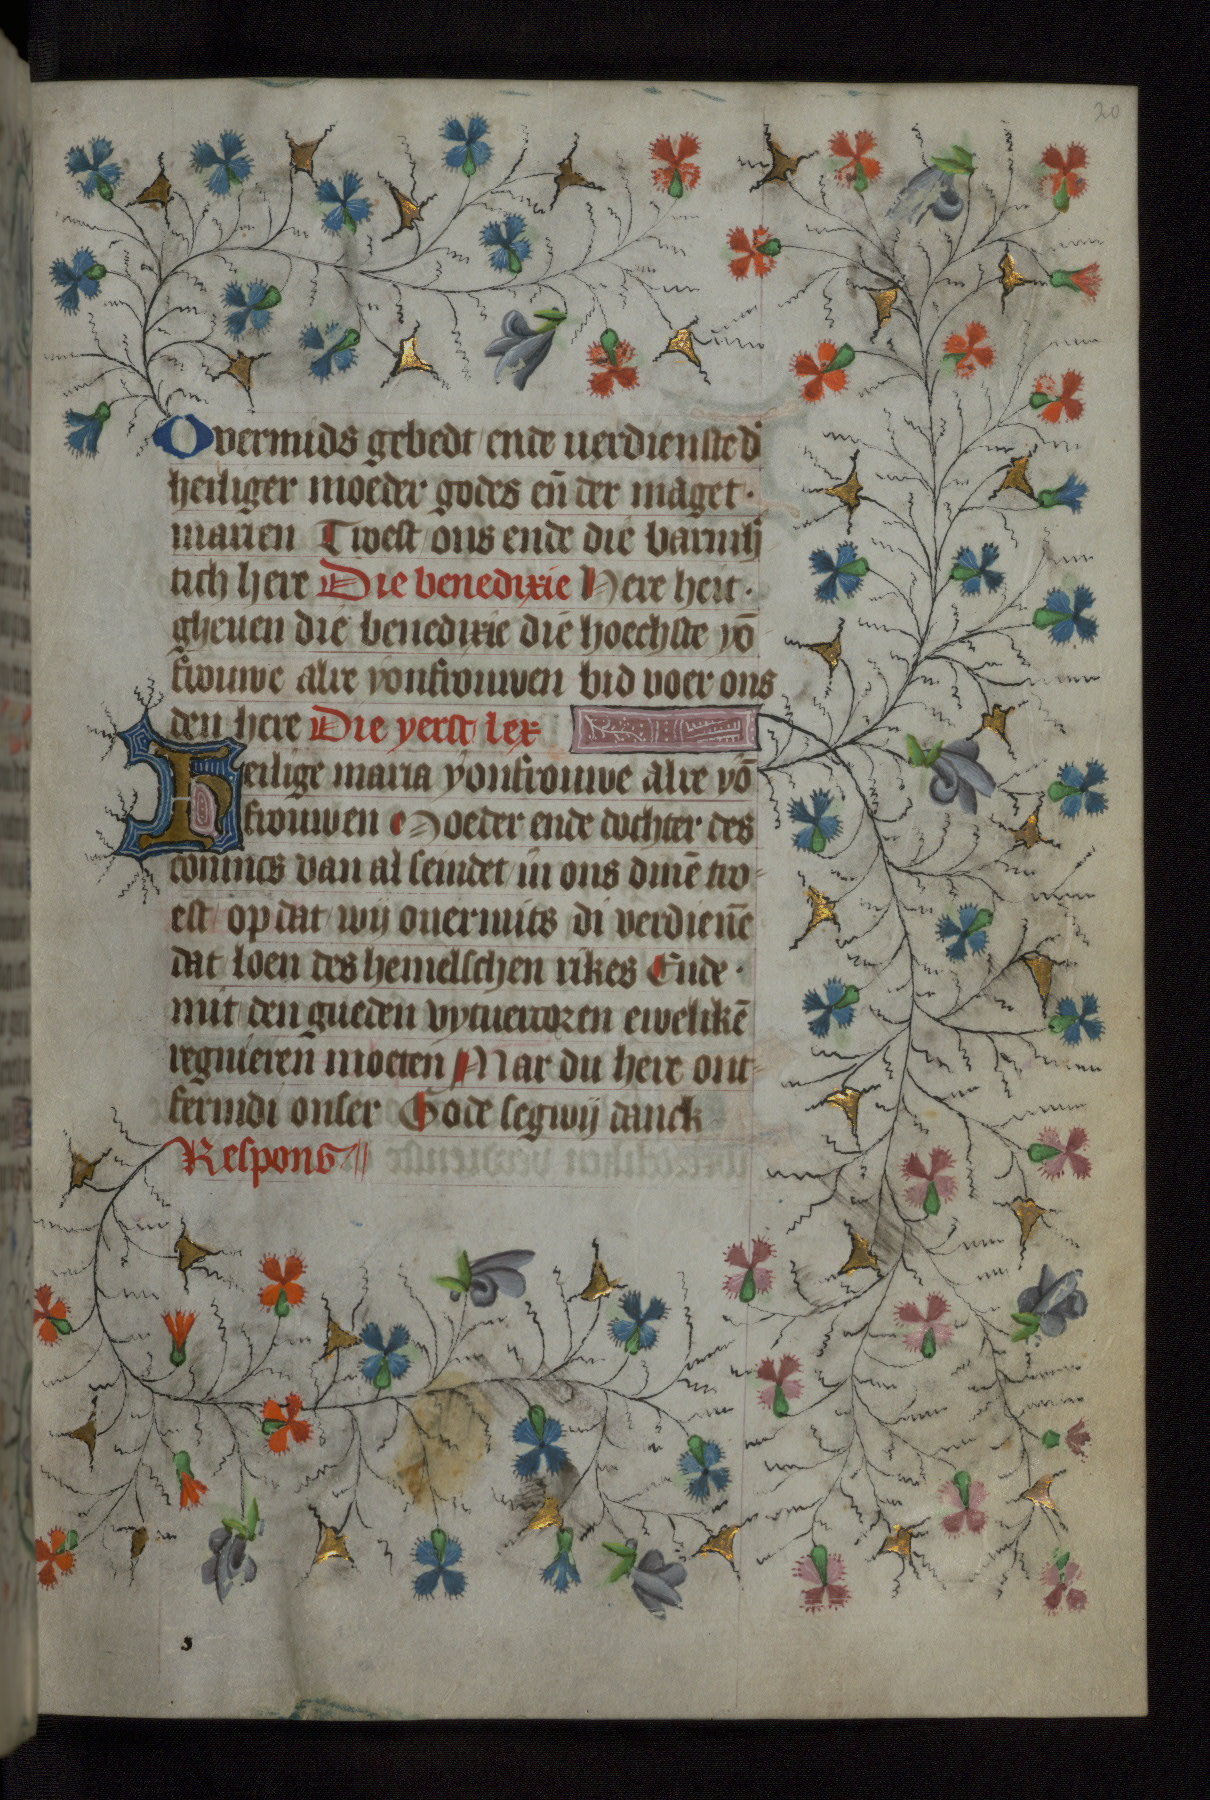 20
Overmids gebedt ende uerdienste d'
heiliger moeder godes eñ der maget·
marien Twest ons ende die barmh
tich here Die benedixie Here heit·
gheuen die benedixie die hoechste yō
frouwe alre yonfrouwen bid voer ons
den here Die yerst lex
Heilige maria yonfrouwe alre yō
frouwen Moeder ende dochter des
conincs van al seindet in ons dinē tro-
est op dat wij ouermits di verdienē
dat loen des hemelschen rikes Ende·
mit den gueden vytuercoren ewelikē
regnieren moeten Mar du here ont-
fermdi onser Gode segwij danck
Respons